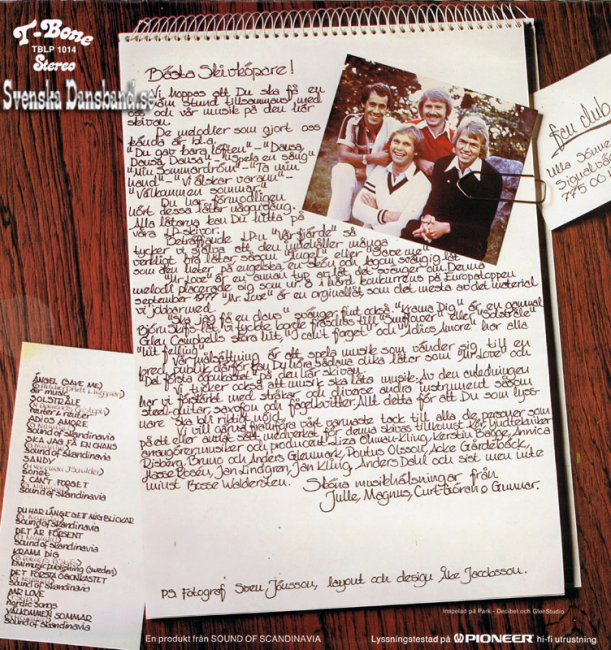 T-Bone
TBLP 1014
Stereo
Svenska Dansband.se
Bästa Skivköpare!
Vi hoppas att Du ska få en
skön stund tillsammans med
oss och vår musik på den här
skivan.
De melodier som gjort oss
kända är bl.a.
"Du gav bara löften" - "Dansa,
Dansa, Dansa" - "Spela en sång"
"Min Sommardröm" - "Ta min
hand" - "Vi älskar varann" -
"Välkommen sommar"
Du har förmodligen
hört dessa låtar någongång.
Alla låtarna kan Du hitta på
våra LP-skivor.
Beträffande LP:n "Vår fjärde" så
tycker vi själva att den innehåller många
verkligt bra låtar såsom "Ängel" eller "Save me"
som den heter på engelska, en skön och lugn sång
"Mr Love" är en annan typ av låt det svänger om. Denna
melodi placerade sig som nr 9 i hård konkurrens på Europatoppen
september 1977. "Mr Love" är en orginallåt som det mesta av det material
vi jobbar med.
"Ska jag få en chans" svänger fint också. "Krama Dig" är en gammal
Björn Skifs-låt. Vi tyckte den borde fräschas till. "Sunflower" eller "Solstråle"
Glen Campbells stora hit, "I can't forget" och "Adios Amore" har alla
"hit feeling".
Vår målsättning är att spela musik som vänder sig till en
bred publik, därför kan Du höra sådana olika låtar som "Mr Love" och
"Det första ögonkastet" på den här skivan.
Vi tycker också att musik ska låta musik. Av den anledningen
har vi förstärkt med stråkar och diverse andra instrument såsom
steel-guitar, saxofon och fågelkvitter. Allt detta för att Du som lyss-
nare ska bli riktigt nöjd.
Vi vill också framföra vårt varmaste tack till alla de personer som
på ett eller annat sätt medverkat för denna skivas tillkomst: ljudtekniker
arrangörer, musiker och producent: Liza Öhman-Kling, Kerstin Bagge, Annica
Risberg, Bruno och Anders Glenmark, Pontus Olsson, Acke Gårdebäck,
Hasse Rosén, Jan Lindgren, Jan Kling, Anders Dahl och sist men inte
minst Bosse Waldersten.
Sköna musikhälsningar från
Julle, Magnus, Curt-Göran o Gunnar.
PS Fotograf Sven Jönsson, layout och design Åke Jacobsson.
Fan club
Ulla
Signalv
775 00 K
ÄNGEL (SAVE ME)
air music
SOLSTRÅLE
reuter & reuter
ADIOS AMORE
Sound of Scandinavia
SKA JAG FÅ EN CHANS
Sound of Scandinavia
SANDY
Sonet
I CAN'T FORGET
Sound of Scandinavia
DU HAR LÄNGE GETT MIG BLICKAR
Sound of Scandinavia
DET ÄR FÖRSENT
Sound of Scandinavia
KRAMA DIG
EMI music publishing (Sweden)
DET FÖRSTA ÖGONKASTET
Sound of Scandinavia
MR LOVE
Nordic songs
VÄLKOMMEN SOMMAR
Sound of Scandinavia
Inspelad på Park - Decibel och GlenStudio
En produkt från SOUND OF SCANDINAVIA
Lyssningstestad på PIONEER hi-fi utrustning.